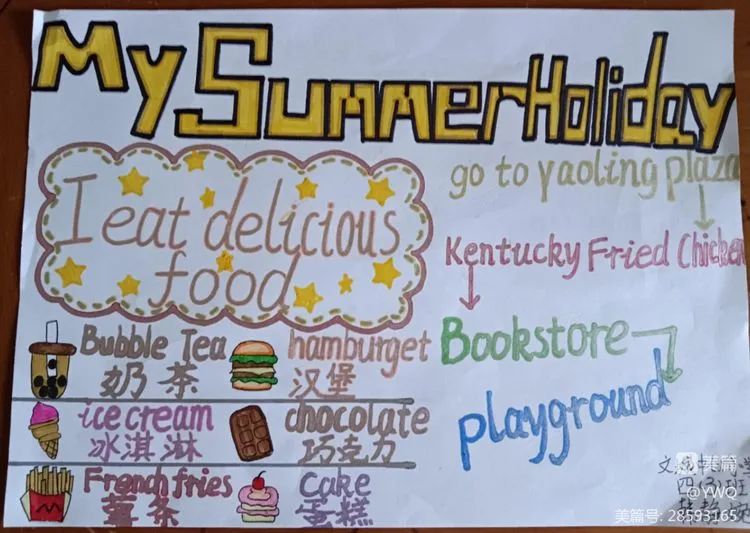 My Summer Holiday
I eat delicious
food
go to yaoling plaza
Kentucky Fried Chicken
Bookstore
playground
Bubble Tea
奶茶
hamburget
汉堡
ice cream
冰淇淋
chocolate
巧克力
French fries
薯条
Cake
蛋糕
四(3)班
美篇
@YWQ
美篇号: 28593165